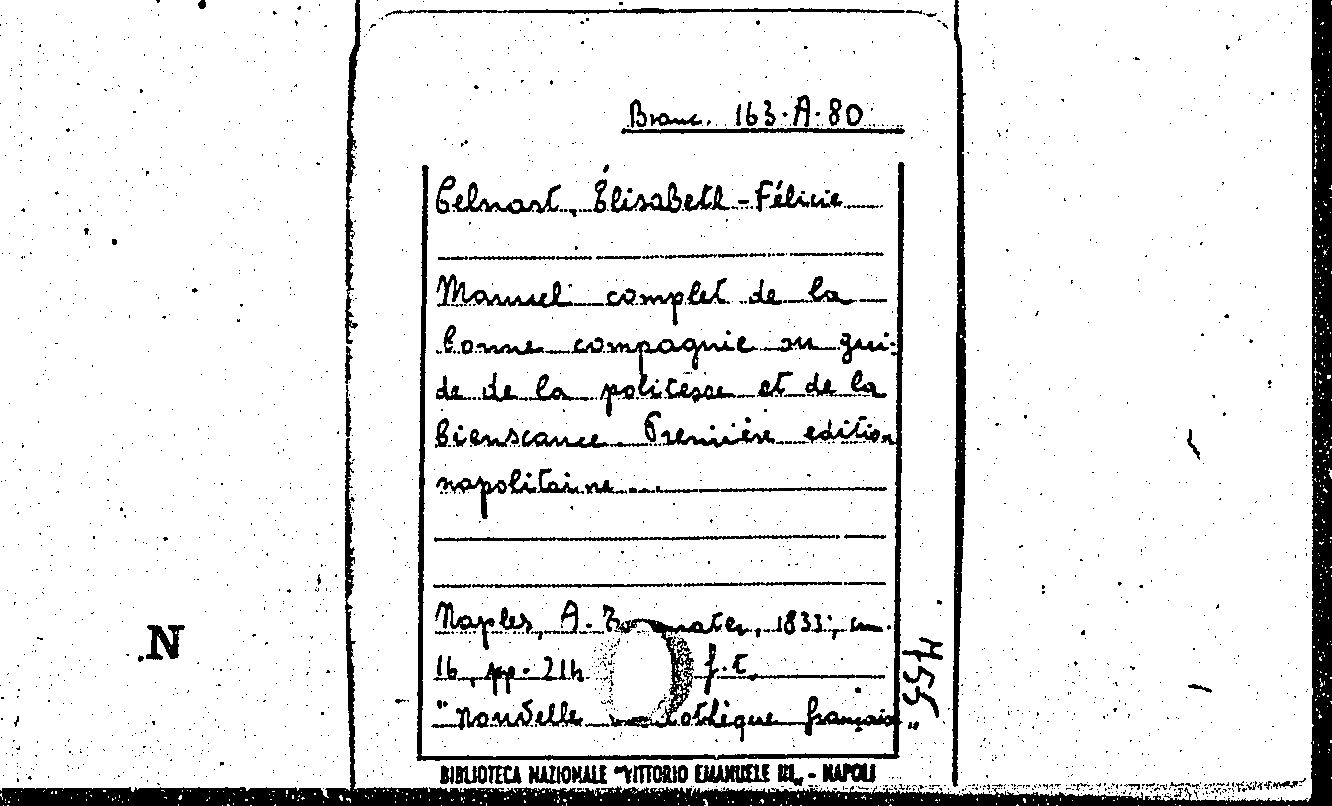 Branc. 163.A.80
Celnart, Élisabeth-Félicie
Manuel complet de la
bonne compagnie ou gui-
de de la politesse et de la
bienséance. Première edition
napolitaine...
Naples, A. 1833; cm.
16, pp. 214 f.t.
"Nouvelle française"
455
N
BIBLIOTECA NAZIONALE "VITTORIO EMANUELE III" - NAPOLI